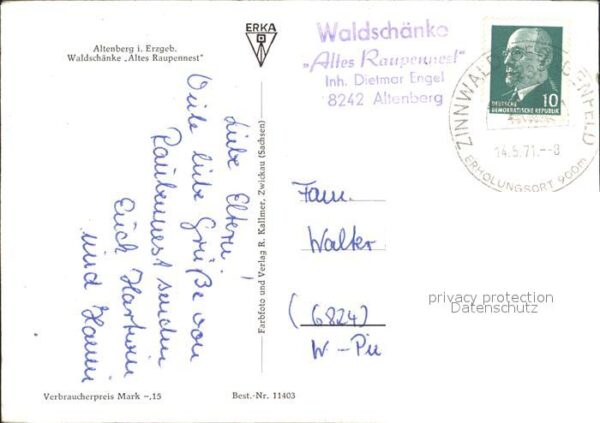 Altenberg i. Erzgeb.
Waldschänke „Altes Raupennest"
ERKA
Waldschänke
„Altes Raupennest"
Inh. Dietmar Engel
8242 Altenberg
DEUTSCHE
DEMOKRATISCHE REPUBLIK
10
14.5.71.--8
ERHOLUNGSORT 900m
Liebe Eltern!
Viele liebe Grüße von
Raubennest senden
Euch Hartwin
und Hanni
Farbfoto und Verlag R. Kallmer, Zwickau (Sachsen)
Fam.
Walter
(6824)
W-Pu
privacy protection
Datenschutz
Verbraucherpreis Mark -,15
Best.-Nr. 11403